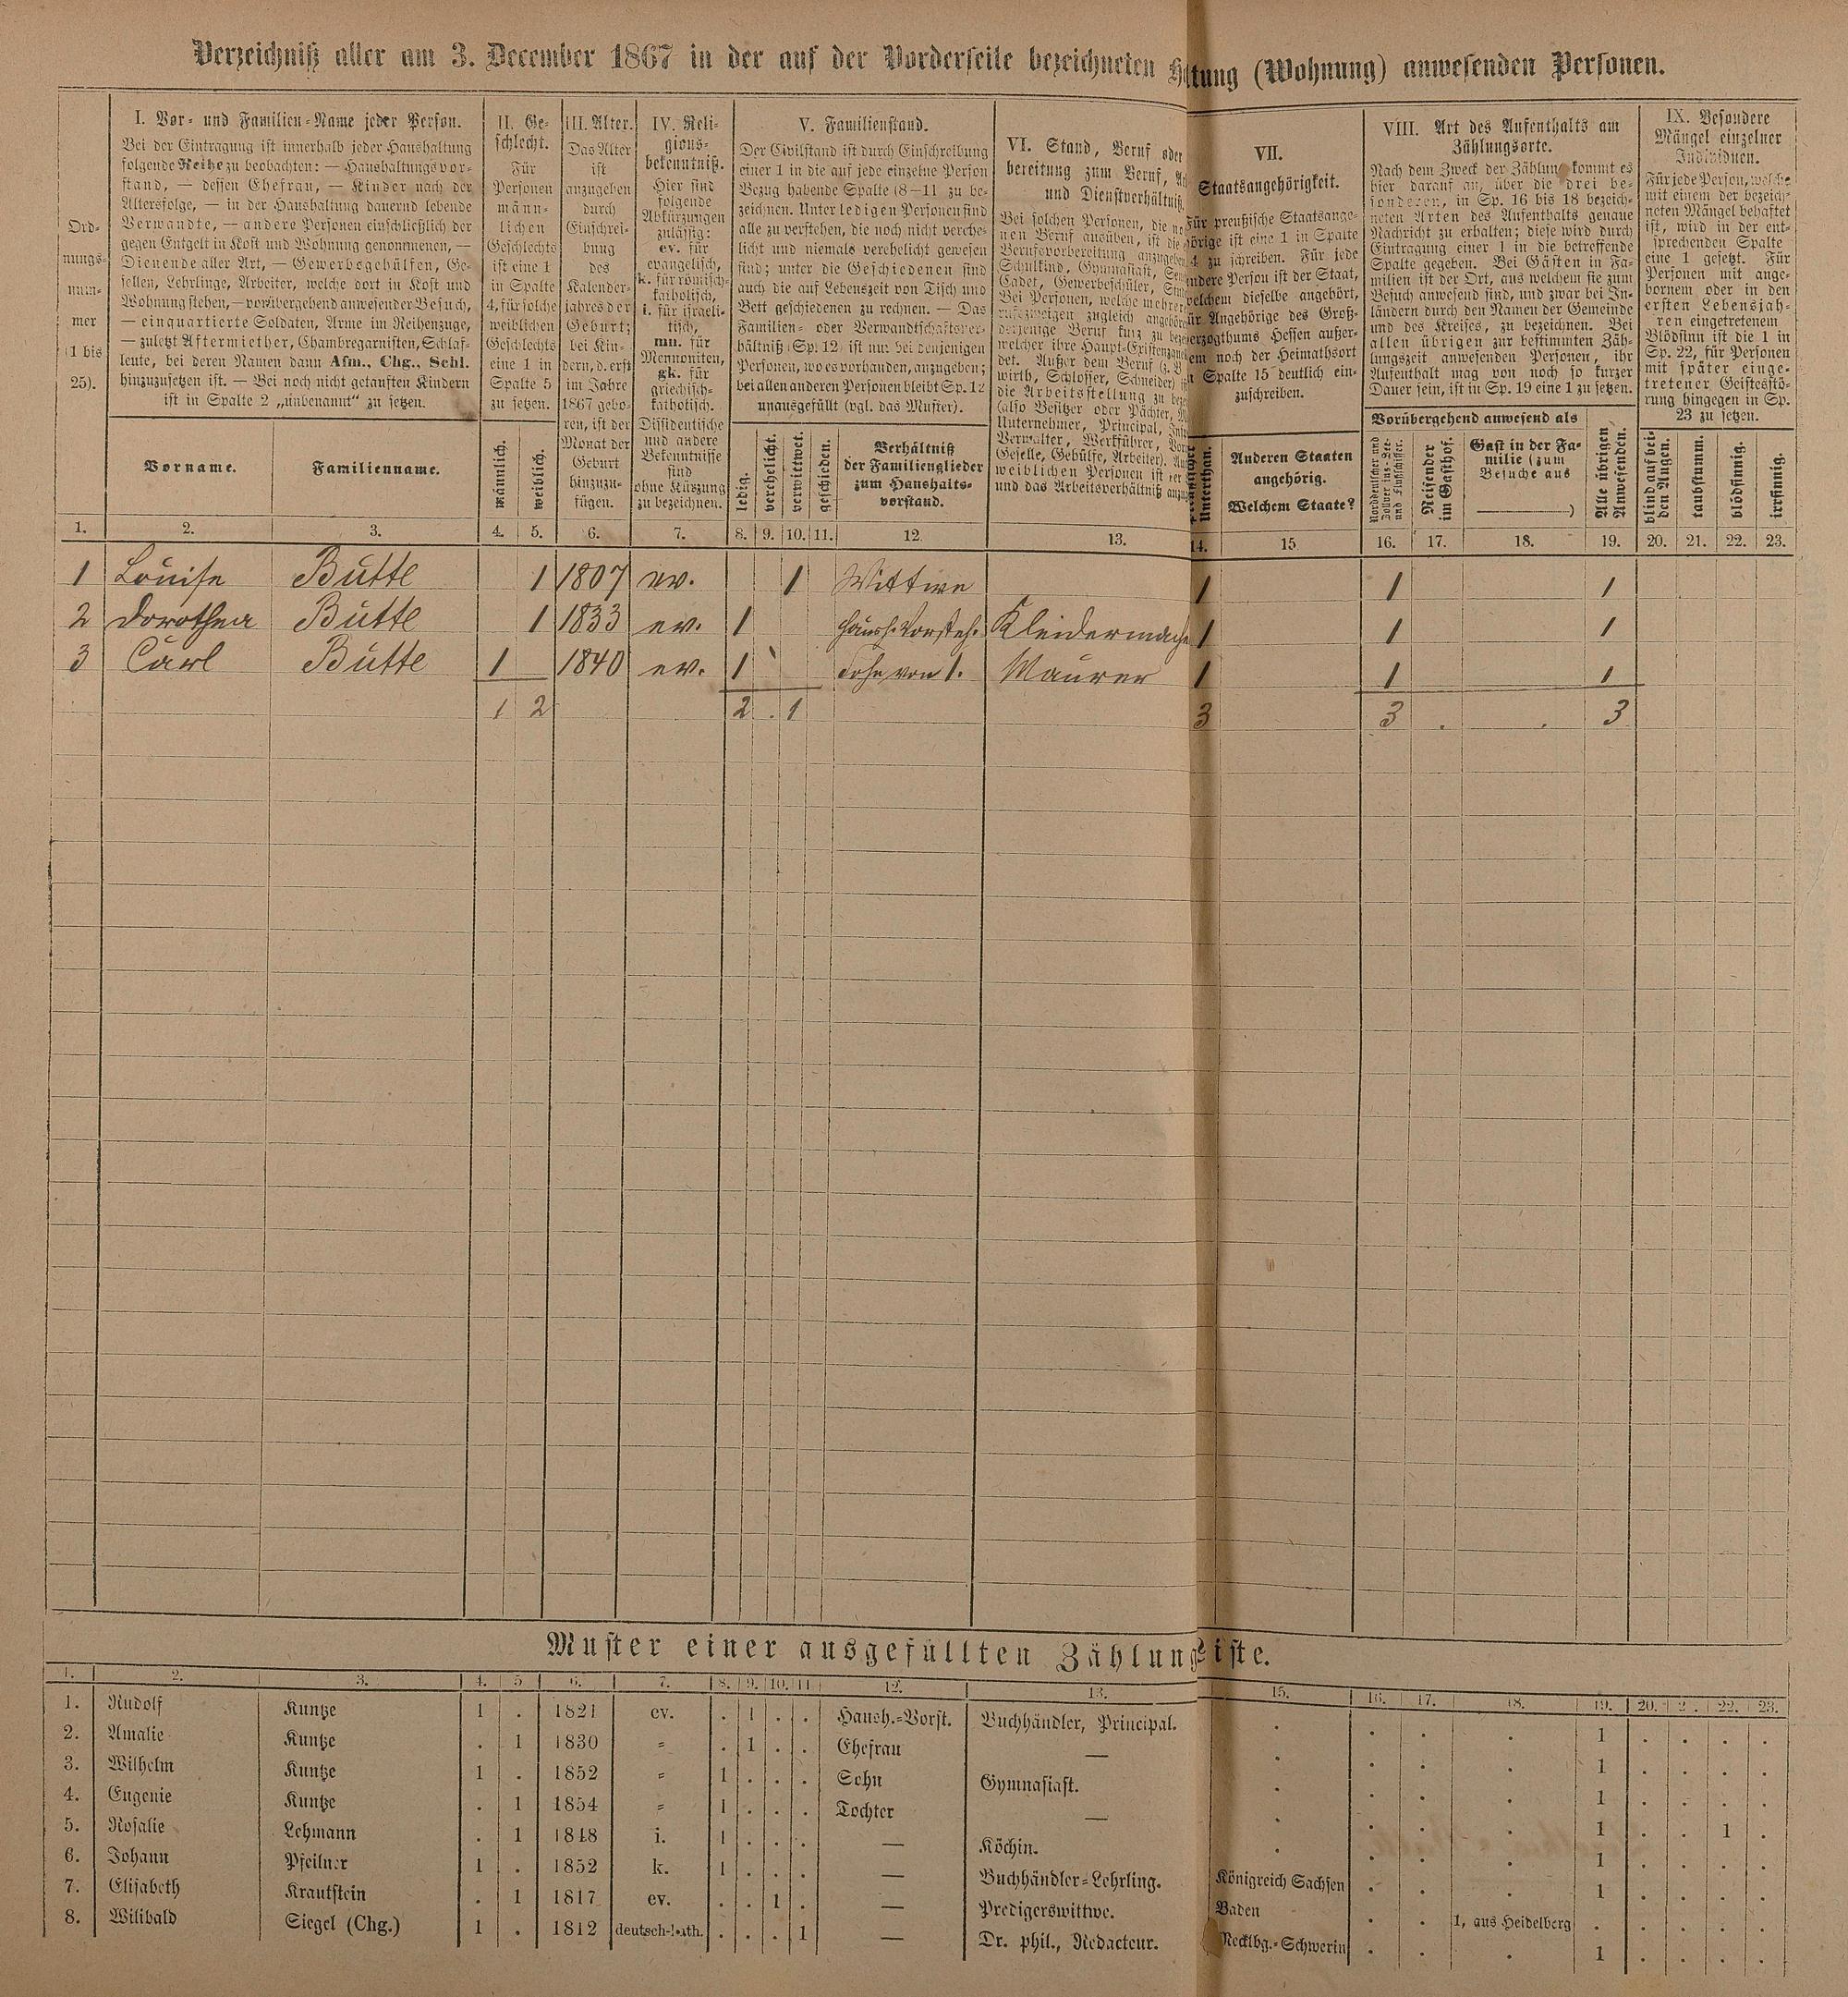 Verzeichniß aller am 3. December 1867 in der auf der Vorderseite bezeichneten Haltung (Wohnung) anwesenden Personen.
Ord-
nungs-
num-
mer
(1 bis
25).
I. Vor- und Familien-Name jeder Person.
Bei der Eintragung ist innerhalb jeder Haushaltung
folgende Reihe zu beobachten: — Haushaltungsvor-
stand, — dessen Ehefrau, — Kinder nach der
Altersfolge, — in der Haushaltung dauernd lebende
Verwandte, — andere Personen einschließlich der
gegen Entgelt in Kost und Wohnung genommenen, —
Dienende aller Art, — Gewerbsgehülfen, Ge-
sellen, Lehrlinge, Arbeiter, welche dort in Kost und
Wohnung stehen, — vorübergehend anwesender Besuch,
— einquartierte Soldaten, Arme im Reihenzuge,
— zuletzt Aftermiether, Chambregarnisten, Schlaf-
leute, bei deren Namen dann Afm., Chg., Schl.
hinzuzusetzen ist. — Bei noch nicht getauften Kindern
ist in Spalte 2 „unbenannt“ zu setzen.
Vorname.
Familienname.
II. Ge-
schlecht.
Für
Personen
männ-
lichen
Geschlechts
ist eine 1
in Spalte
4, für solche
weiblichen
Geschlechts
eine 1 in
Spalte 5
zu setzen.
männlich.
weiblich.
III. Alter.
Das Alter
ist
anzugeben
durch
Einschrei-
bung
des
Kalender-
jahres der
Geburt;
bei Kin-
dern, d. erst
im Jahre
1867 gebo-
ren, ist der
Monat der
Geburt
hinzuzu-
fügen.
IV. Reli-
gions-
bekenntniß.
Hier sind
folgende
Abkürzungen
zulässig:
ev. für
evangelisch,
k. für römisch-
katholisch,
i. für israeli-
tisch,
mn. für
Mennoniten,
gk. für
griechisch-
katholisch.
Dissidentische
und andere
Bekenntnisse
sind
ohne Kürzung
zu bezeichnen.
V. Familienstand.
Der Civilstand ist durch Einschreibung
einer 1 in die auf jede einzelne Person
Bezug habende Spalte (8—11 zu be-
zeichnen. Unter ledigen Personen sind
alle zu verstehen, die noch nicht verehe-
licht und niemals verehelicht gewesen
sind; unter die Geschiedenen sind
auch die auf Lebenszeit von Tisch und
Bett geschiedenen zu rechnen. — Das
Familien- oder Verwandtschaftsver-
hältniß (Sp. 12) ist nur bei denjenigen
Personen, wo es vorhanden, anzugeben;
bei allen anderen Personen bleibt Sp. 12
unausgefüllt (vgl. das Muster).
ledig.
verehelicht.
verwittwet.
geschieden.
Verhältniß
der Familienglieder
zum Haushalts-
vorstand.
VI. Stand, Beruf oder
bereitung zum Beruf,
und Dienstverhältniß.
Bei solchen Personen, die
nen Beruf ausüben, ist die
Berufsvorbereitung anzugeben
Schulkind, Gymnasiast,
Cadet, Gewerbeschüler,
Bei Personen, welche mehreren
rufszweigen zugleich angehören
derjenige Beruf kurz zu
welcher ihre Haupt-Existenz
det. Außer dem Beruf (z. B.
wirth, Schlosser, Schneider)
die Arbeitsstellung zu
(also Besitzer oder Pächter,
Unternehmer, Principal,
Verwalter, Werkführer,
Geselle, Gehülfe, Arbeiter).
weiblichen Personen ist
und das Arbeitsverhältniß
VII.
Staatsangehörigkeit.
Für preußische Staatsange-
hörige ist eine 1 in Spalte
14 zu schreiben. Für jede
andere Person ist der Staat,
welchem dieselbe angehört,
für Angehörige des Groß-
herzogthums Hessen außer-
dem noch der Heimathsort
in Spalte 15 deutlich ein-
zuschreiben.
Unterthan.
Anderen Staaten
angehörig.
Welchem Staate?
VIII. Art des Aufenthalts am
Zählungsorte.
Nach dem Zweck der Zählung kommt es
hier darauf an, über die drei be-
sonderen, in Sp. 16 bis 18 bezeich-
neten Arten des Aufenthalts genaue
Nachricht zu erhalten; diese wird durch
Eintragung einer 1 in die betreffende
Spalte gegeben. Bei Gästen in Fa-
milien ist der Ort, aus welchem sie zum
Besuch anwesend sind, und zwar bei In-
ländern durch den Namen der Gemeinde
und des Kreises, zu bezeichnen. Bei
allen übrigen zur bestimmten Zäh-
lungszeit anwesenden Personen, ihr
Aufenthalt mag von noch so kurzer
Dauer sein, ist in Sp. 19 eine 1 zu setzen.
Vorübergehend anwesend als
Norddeutscher und
Zollver ins-See-
und Flußschiffer.
Reisender
im Gasthof.
Gast in der Fa-
milie (zum
Besuche aus
)
Alle übrigen
Anwesenden.
IX. Besondere
Mängel einzelner
Individuen.
Für jede Person, welche
mit einem der bezeich-
neten Mängel behaftet
ist, wird in der ent-
sprechenden Spalte
eine 1 gesetzt. Für
Personen mit ange-
bornem oder in den
ersten Lebensjah-
ren eingetretenem
Blödsinn ist die 1 in
Sp. 22, für Personen
mit später einge-
tretener Geistesstö-
rung hingegen in Sp.
23 zu setzen.
blind auf bei-
den Augen.
taubstumm.
blödsinnig.
irrsinnig.
1. 2. 3. 4. 5. 6. 7. 8. 9. 10. 11. 12. 13. 14. 15. 16. 17. 18. 19. 20. 21. 22. 23.
1 Louise Butte 1 1807 ev. 1 Wittwe 1 1 1
2 Dorothea Butte 1 1833 ev. 1 Haush. Vorsteh. Kleidermache 1 1 1
3 Carl Butte 1 1840 ev. 1 Sohn von 1. Maurer 1 1 1
1 2 2 . 1 3 3 . . 3
Muster einer ausgefüllten Zählungsliste.
1. 2. 3. 4. 5 6. 7. 8. 9. 10. 11 12. 13. 15. 16. 17. 18. 19. 20. 2. 22. 23.
1. Rudolf Kuntze 1 . 1821 ev. . 1 . . Haush.-Vorst. Buchhändler, Principal. . . . . 1 . . . .
2. Amalie Kuntze . 1 1830 „ . 1 . . Ehefrau — . . . . 1 . . . .
3. Wilhelm Kuntze 1 . 1852 „ 1 . . . Sohn Gymnasiast. . . . . 1 . . . .
4. Eugenie Kuntze . 1 1854 „ 1 . . . Tochter — . . . . 1 . . 1 .
5. Rosalie Lehmann . 1 1848 i. 1 . . . — Köchin. . . . 1 . . . .
6. Johann Pfeilner 1 . 1852 k. 1 . . . — Buchhändler-Lehrling. Königreich Sachsen . . . 1 . . . .
7. Elisabeth Krautstein . 1 1817 ev. . . 1 . — Predigerswittwe. Baden . . 1, aus Heidelberg . . . . .
8. Wilibald Siegel (Chg.) 1 . 1812 deutsch-kath. . . . 1 — Dr. phil., Redacteur. Mecklbg.-Schwerin . . . 1 . . . .